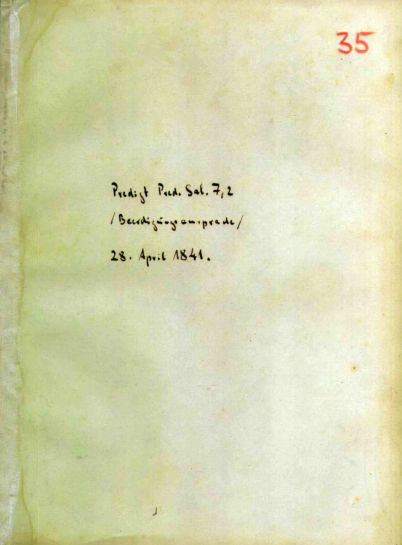 35
Predigt Pred. Sal. 7,2
/Beerdigungsansprache/
28. April 1841.